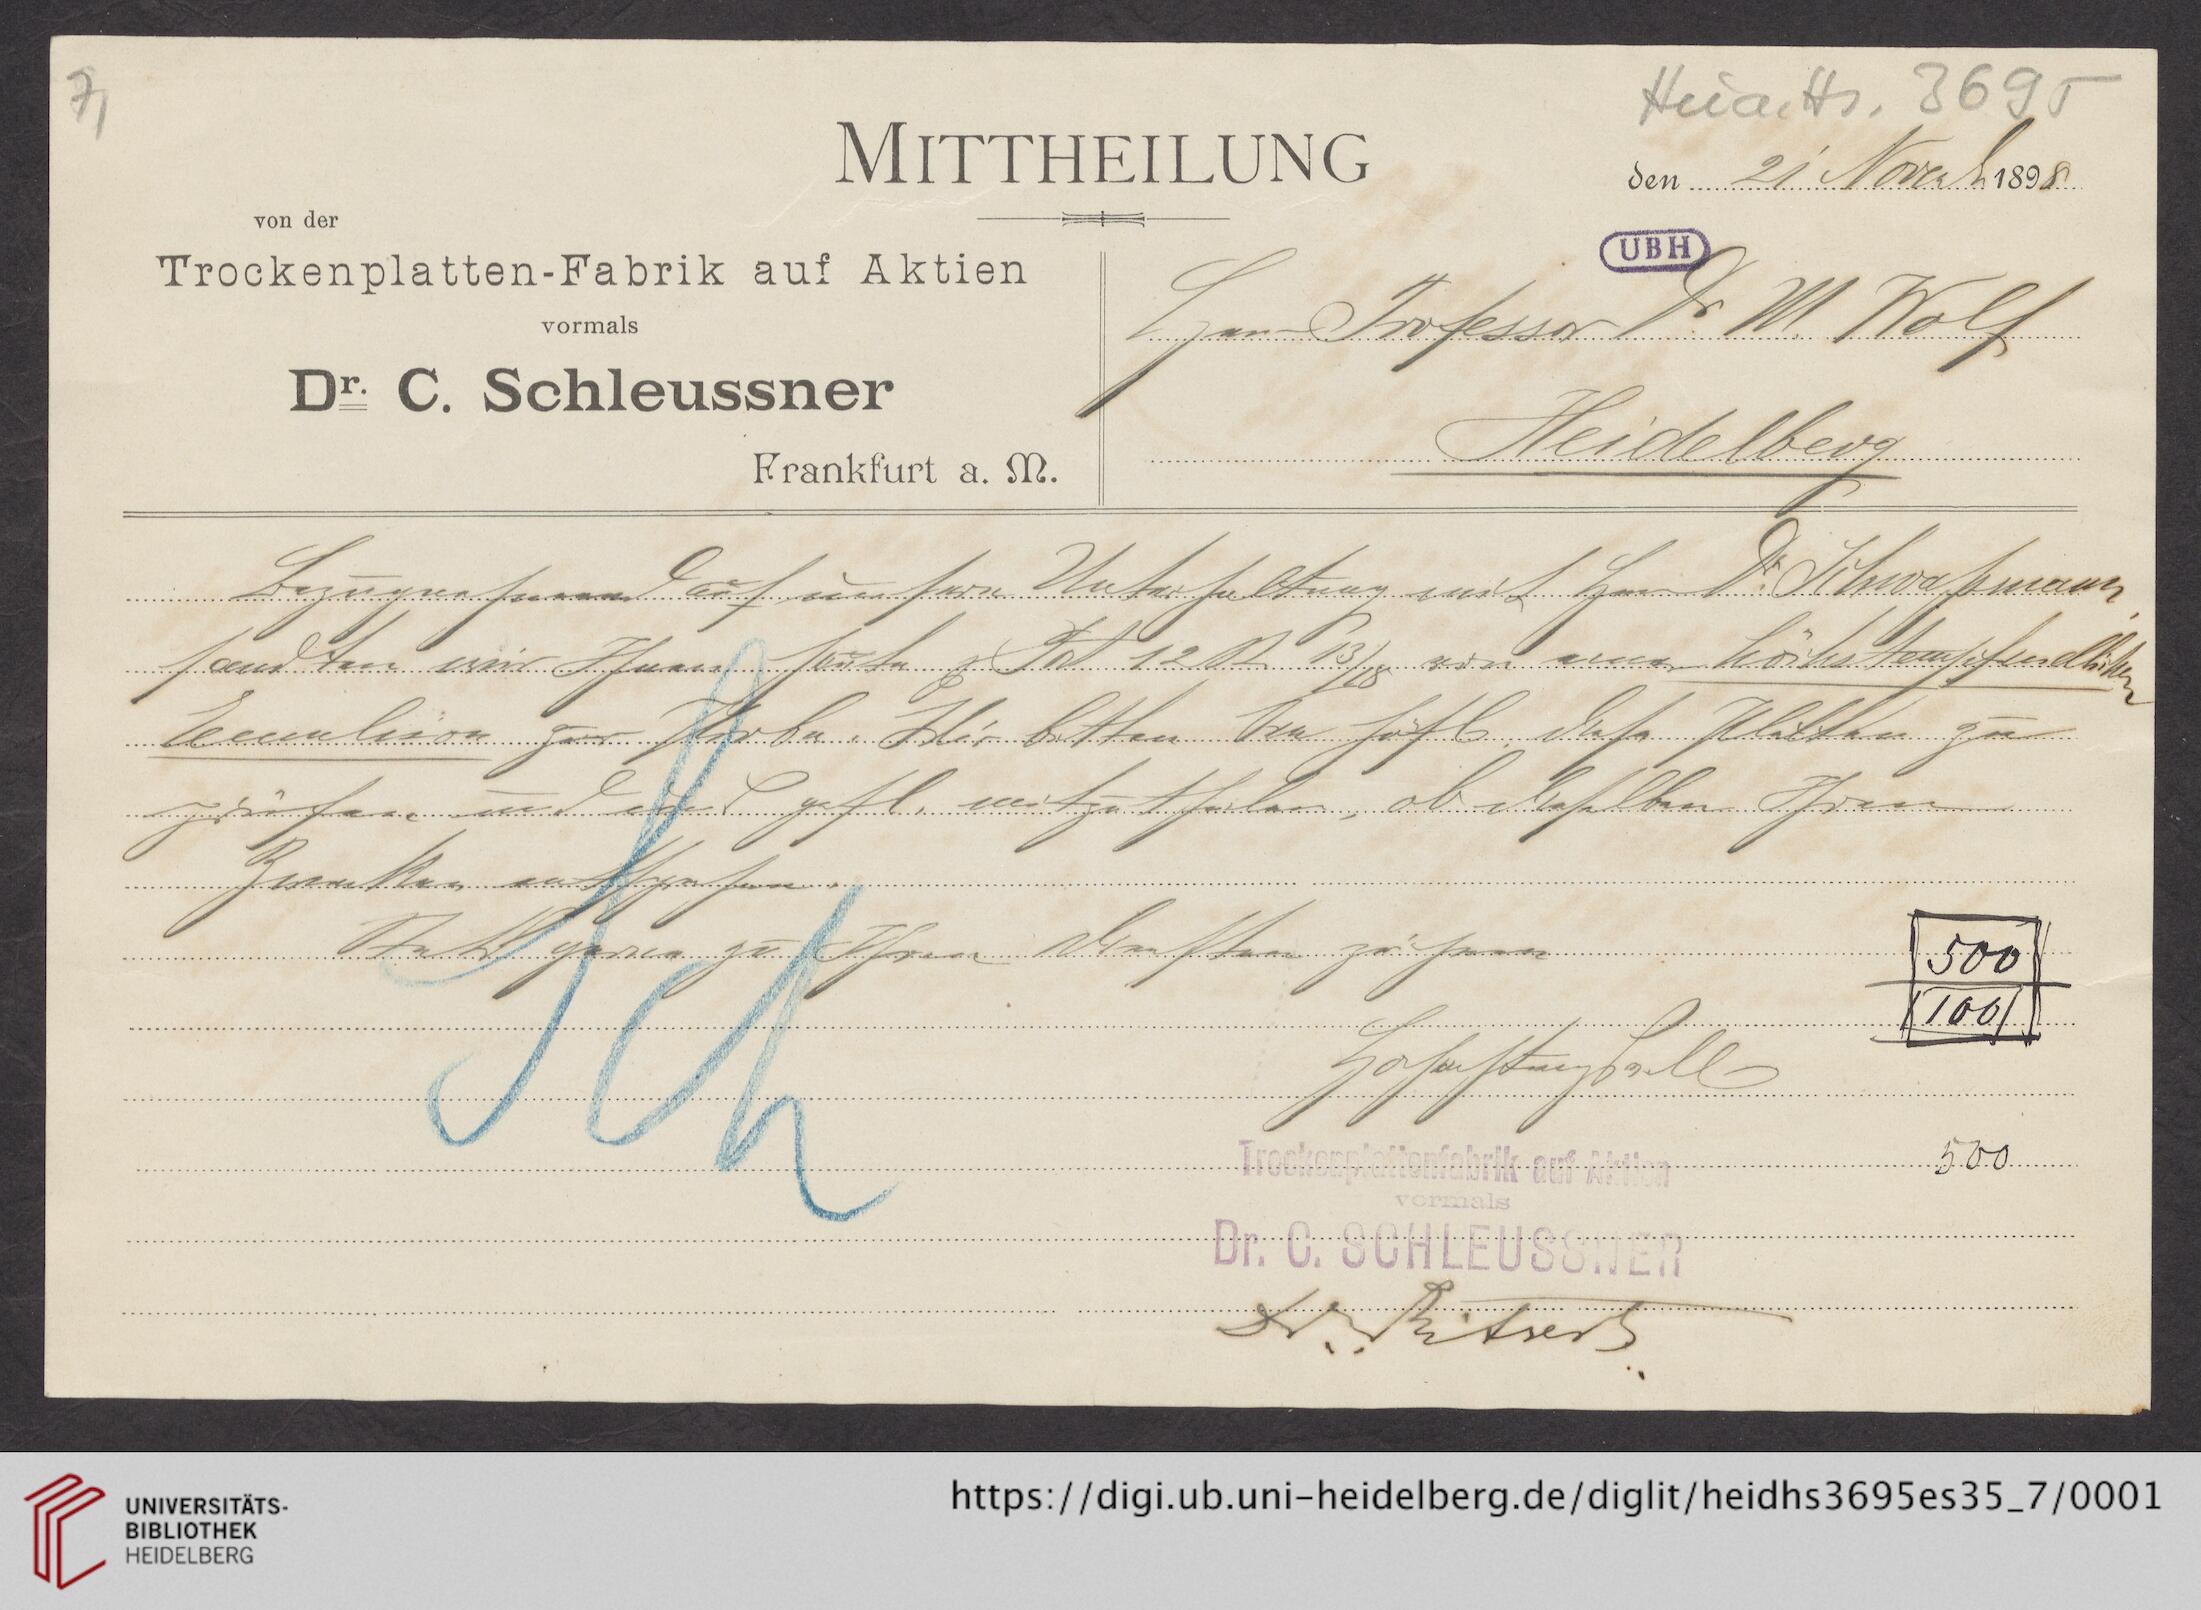 7,
Heid. Hs. 3695
MITTHEILUNG
den 21 Novemb 1898
von der
Trockenplatten-Fabrik auf Aktien
vormals
Dr. C. Schleussner
Frankfurt a. M.
UBH
Herrn Professor Dr. M. Wolf
Heidelberg
Bezugnehmend auf unsere Unterhaltung mit Herrn Dr. Schwaßmann,
sandten wir Ihnen heute 12 13/18 von einer höchstempfindlichen
Emulsion zur Probe. Wir bitten Sie höfl. diese Platten zu
prüfen und uns gefl. mitzutheilen, ob dieselben Ihren
Zwecken entsprechen.
Stets gerne zu Ihren Diensten zeichnen
Hochachtungsvoll
500
100
Trockenplattenfabrik auf Aktien
vormals
Dr. C. SCHLEUSSNER
500
Sch
UNIVERSITÄTS-
BIBLIOTHEK
HEIDELBERG
https://digi.ub.uni-heidelberg.de/diglit/heidhs3695es35_7/0001